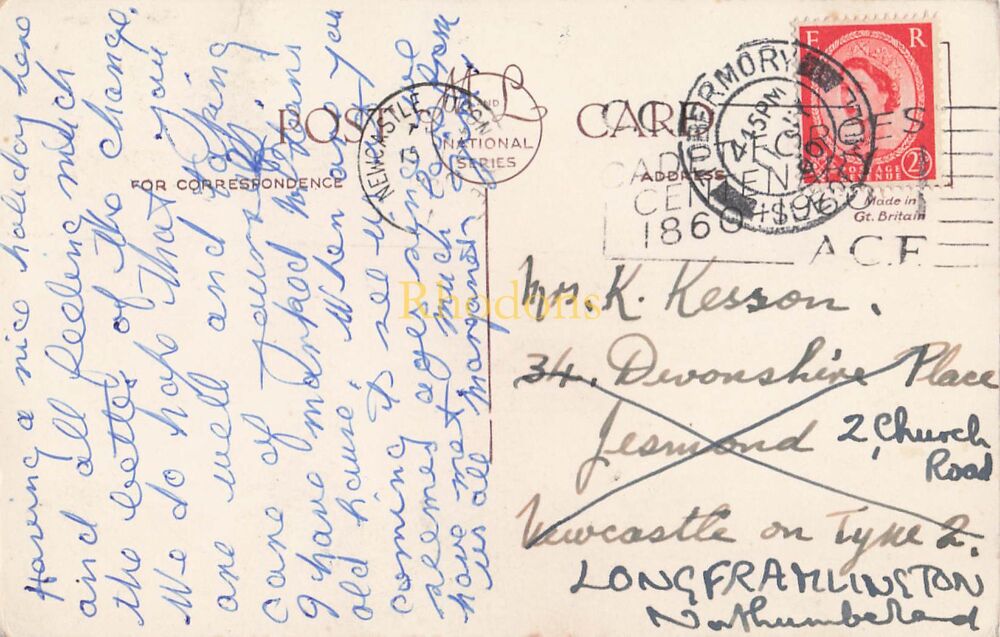 Having a nice holiday here
and all feeling much
the better of the change.
We do hope that you
are well and taking
care of yourself
I have marked Morans
old house. When are you
coming to see us
seemes ages since we
have met much love from
us all Margaret
POST CARD
M & L
NATIONAL
SERIES
FOR CORRESPONDENCE
ADDRESS
NEWCASTLE UPON
TOBERMORY
ISLE OF MULL
45PM
E R
POSTAGE
2½
Made in
Gt. Britain
CADET
CENTENARY
1860 1960
A.C.F.
Rhodons
Mr. K. Kesson.
34. Devonshire Place
Jesmond
2, Church
Road
Newcastle on Tyne 2.
LONGFRAMLINGTON
Northumberland